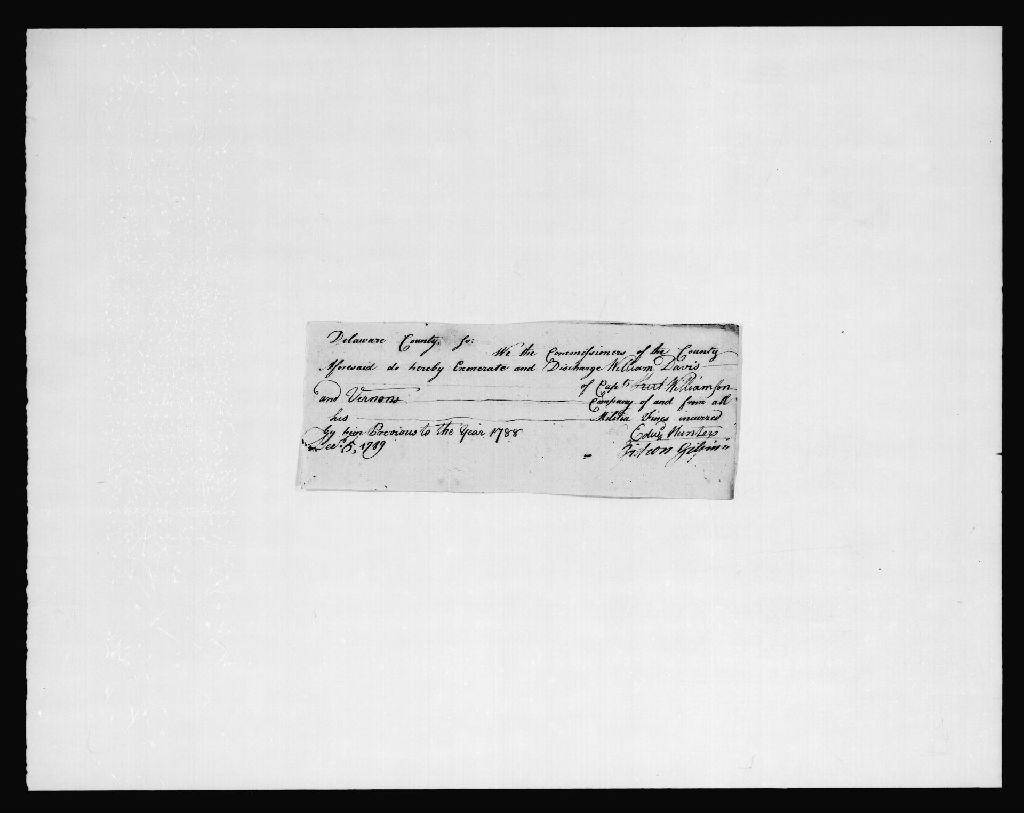 Delaware County, ss:
We the Commissioners of the County
Aforesaid do hereby Exmerate and Discharge William Davis
of Capts Williamson
and Vernons Company of and from all
his Melitia Fines incurred
By him Previous to the Year 1788
Decr. 5, 1789
Edwd Hunter
Gibson